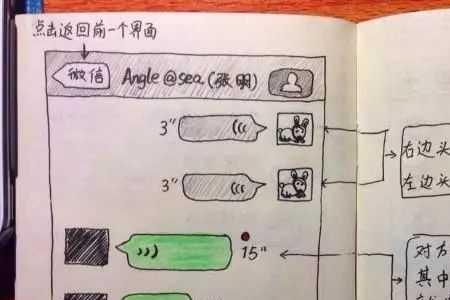 点击返回前一个界面
微信 Angle@sea (张明)
3"
3"
15"
右边头
左边头
对方
其中